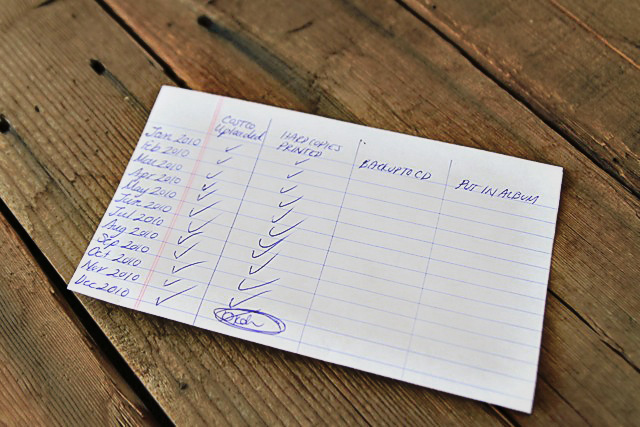 COSTCO
Uploaded
HARDCOPIES
PRINTED
BACKUP TO CD
PUT IN ALBUM
Jan 2010 ✓ ✓
Feb 2010 ✓ ✓
Mar 2010 ✓ ✓
Apr 2010 ✓ ✓
May 2010 ✓ ✓
Jun 2010 ✓ ✓
Jul 2010 ✓ ✓
Aug 2010 ✓ ✓
Sep 2010 ✓ ✓
Oct 2010 ✓ ✓
Nov 2010 ✓ ✓
Dec 2010 ✓ ✓